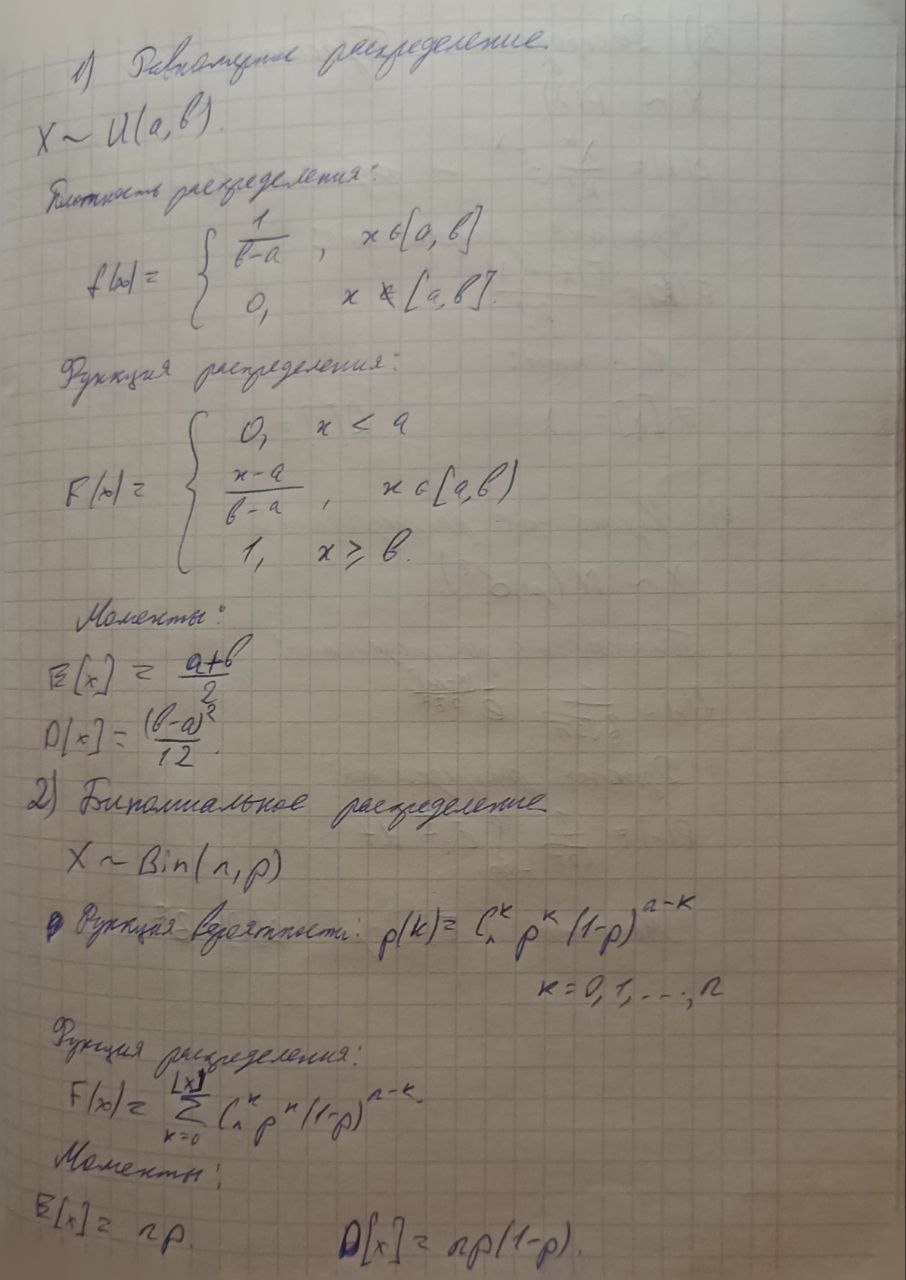 1) Равномерное распределение
X ~ U(a, b).
Плотность распределения:
f(x) = { 1/(b-a), x ∈ [a, b]
0, x ∉ [a, b].
Функция распределения:
F(x) = { 0, x < a
(x-a)/(b-a), x ∈ [a, b)
1, x ≥ b.
Моменты:
E[x] = (a+b)/2
D[x] = (b-a)²/12.
2) Биномиальное распределение
X ~ Bin(n, p)
Функция вероятности: p(k) = Cₙᵏ pᵏ (1-p)ⁿ⁻ᵏ
k = 0, 1, ..., n
Функция распределения:
F(x) = Σ_{k=0}^{⌊x⌋} Cₙᵏ pᵏ (1-p)ⁿ⁻ᵏ.
Моменты:
E[x] = np. D[x] = np(1-p).